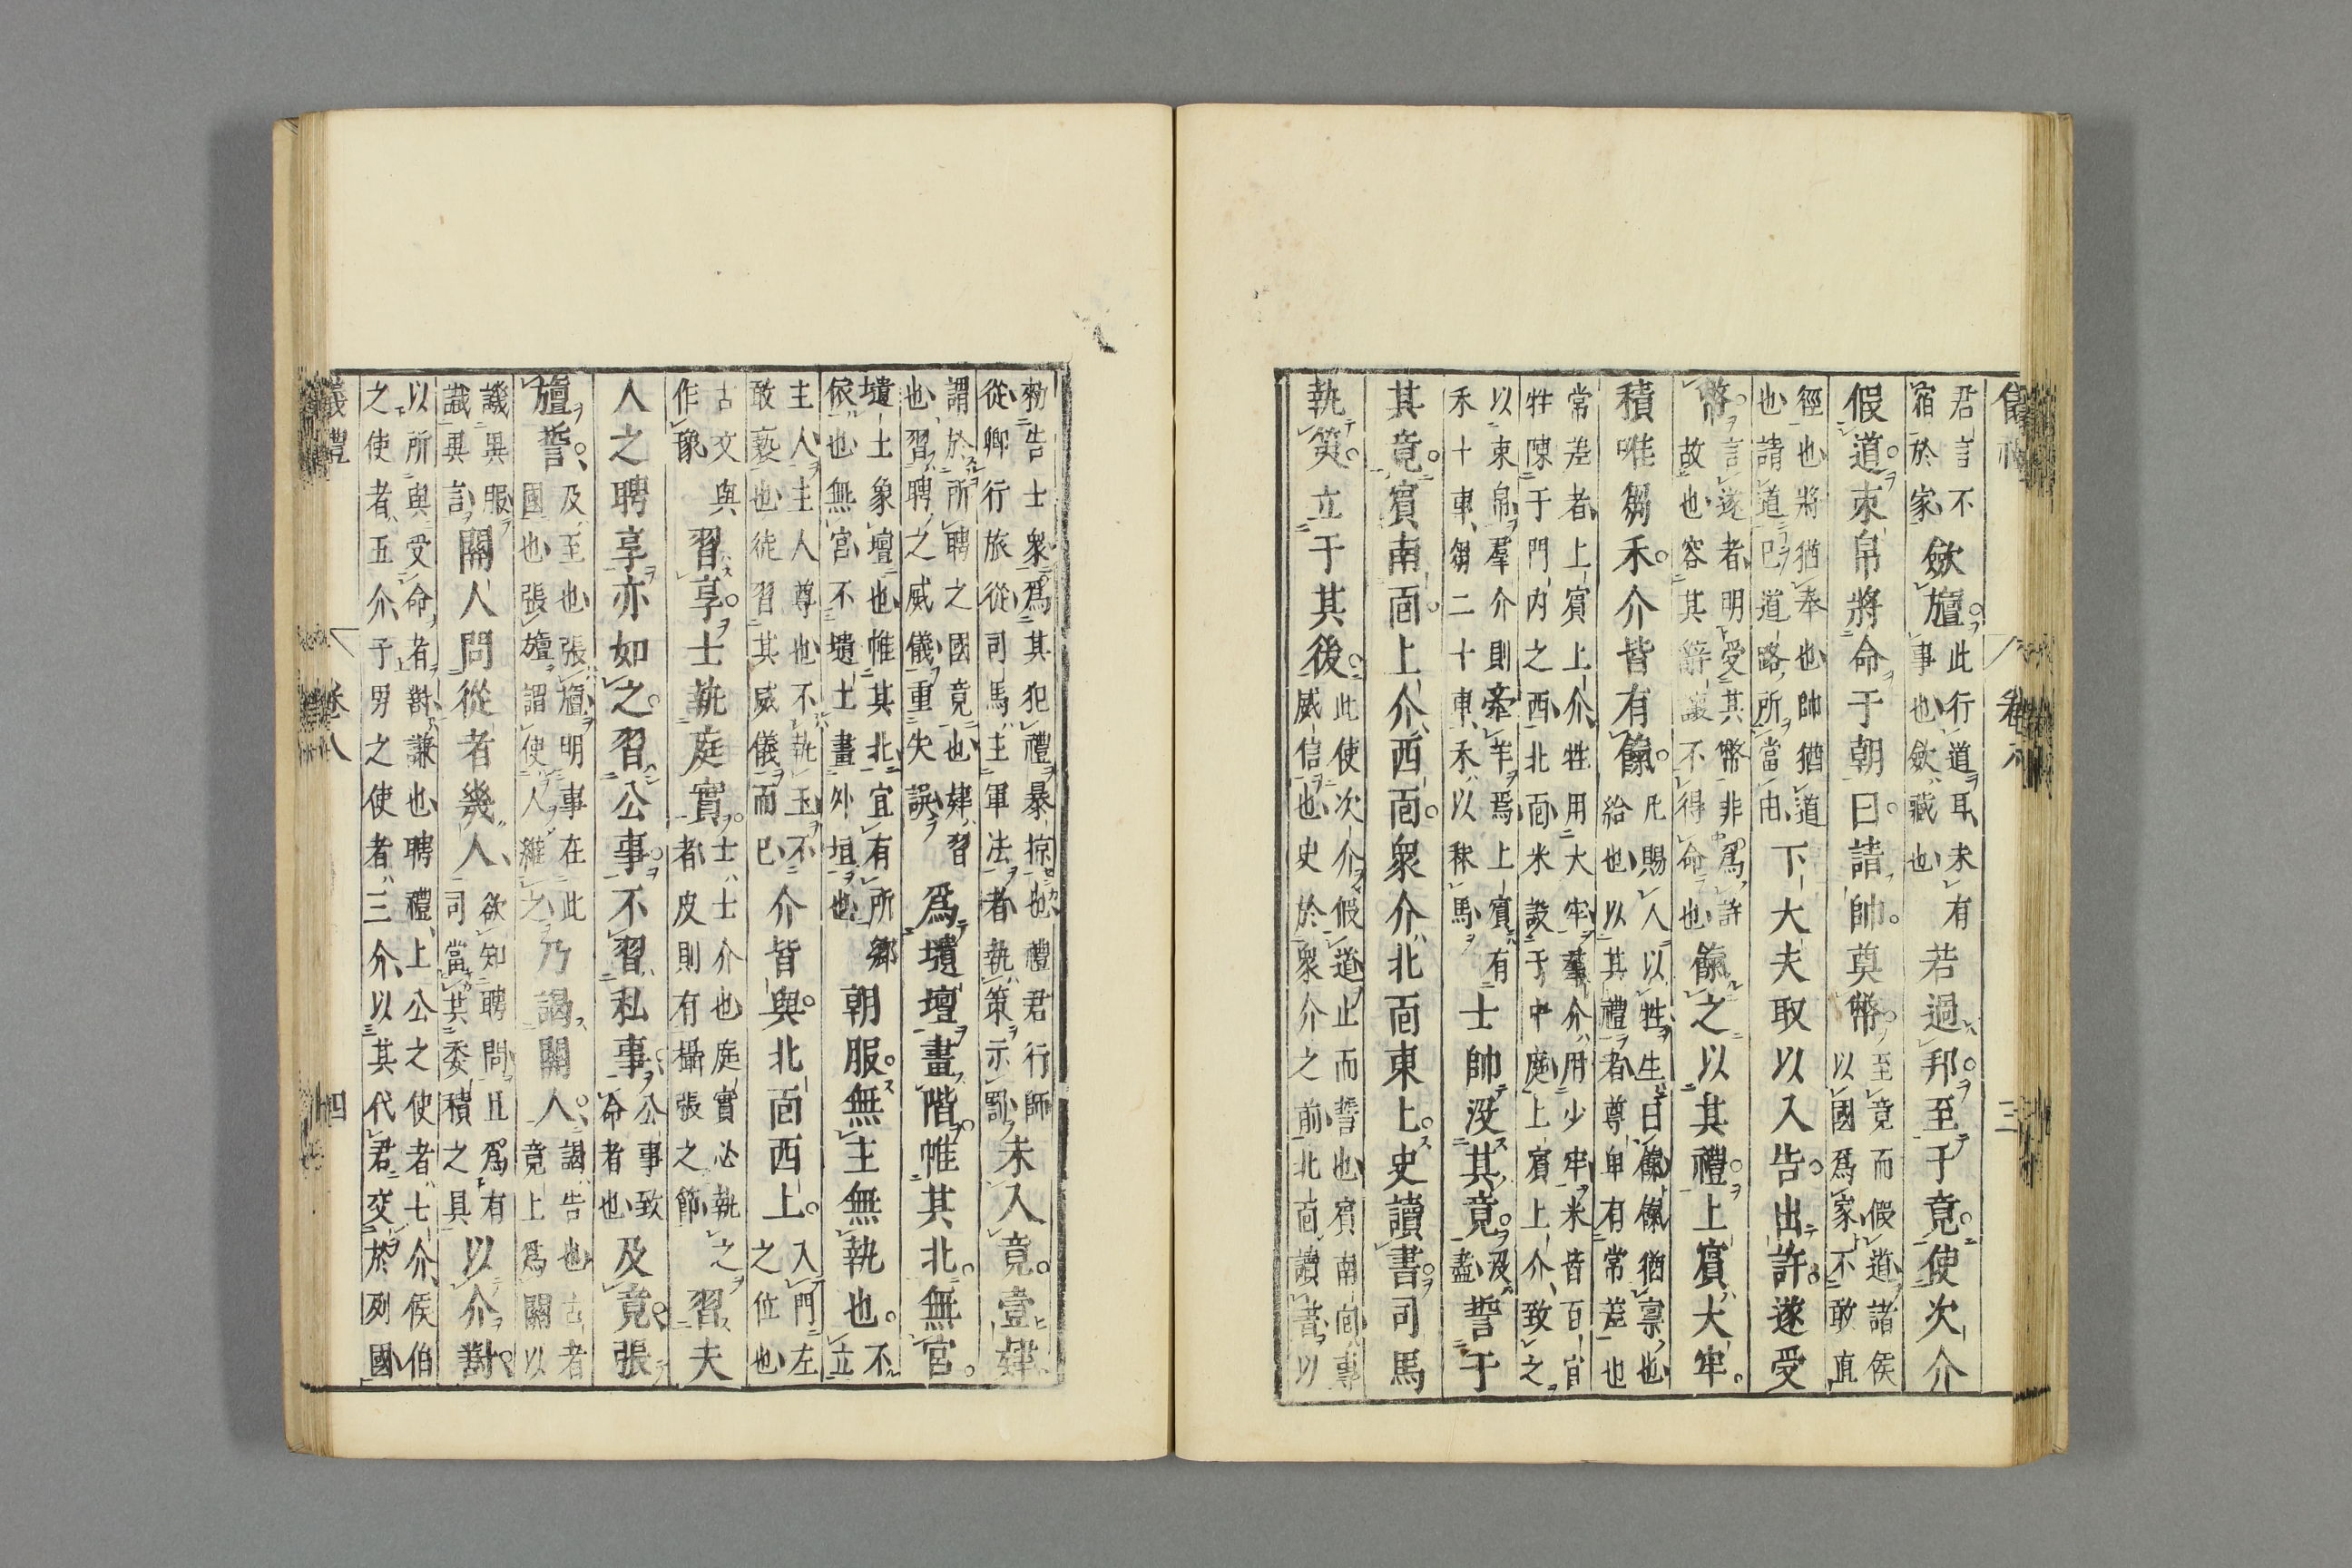 儀禮　卷八　三
君言不
宿於家
斂旜
此行道耳未有
事也斂藏也
若過邦至于竟使次介
假道束帛將命于朝曰請帥奠幣
至竟而假道諸侯
以國爲家不敢直
徑也將猶奉也帥猶道
也請道己道路所當由
下大夫取以入告出許遂受
幣
言遂者明受其幣非爲許
故也容其辭讓不得命也
餼之以其禮上賓大牢
積唯芻禾介皆有餼
凡賜人以牲生曰餼餼猶稟也
給也以其禮者尊卑有常差也
常差者上賓上介牲用大牢羣介用少牢米皆百筥
牲陳于門内之西北面米設于中庭上賓上介致之
以束帛羣介則牽羊焉上賓有
禾十車芻二十車禾以秣馬
士帥没其竟
盡
誓于
其竟賓南面上介西面衆介北面東上史讀書司馬
執筴立于其後
此使次介假道止而誓也賓南面專
威信也史於衆介之前北面讀書以
勑告士衆爲其犯禮暴掠也禮君行師
從卿行旅從司馬主軍法者執策示罰
未入竟壹肄
謂於所聘之國竟也肄習
也習聘之威儀重失誤
爲壝壇畫階帷其北無宮
壝土象壇也帷其北宜有所鄉
依也無宮不壝土畫外垣也
朝服無主無執也
不
立
主人主人尊也不執玉不
敢褻也徒習其威儀而已
介皆與北面西上
入門左
之位也
古文與
作豫
習享士執庭實
士士介也庭實必執之
者皮則有攝張之節
習夫
人之聘享亦如之習公事不習私事
公事致
命者也
及竟張
旜誓
及至也張旜明事在此
國也張旜謂使人維之
乃謁關人
謁告也古者
竟上爲關以
譏異服
識異言
關人問從者幾人
欲知聘問且爲有
司當共委積之具
以介對
以所與受命者對謙也聘禮上公之使者七介侯伯
之使者五介子男之使者三介以其代君交於列國
儀禮　卷八　四